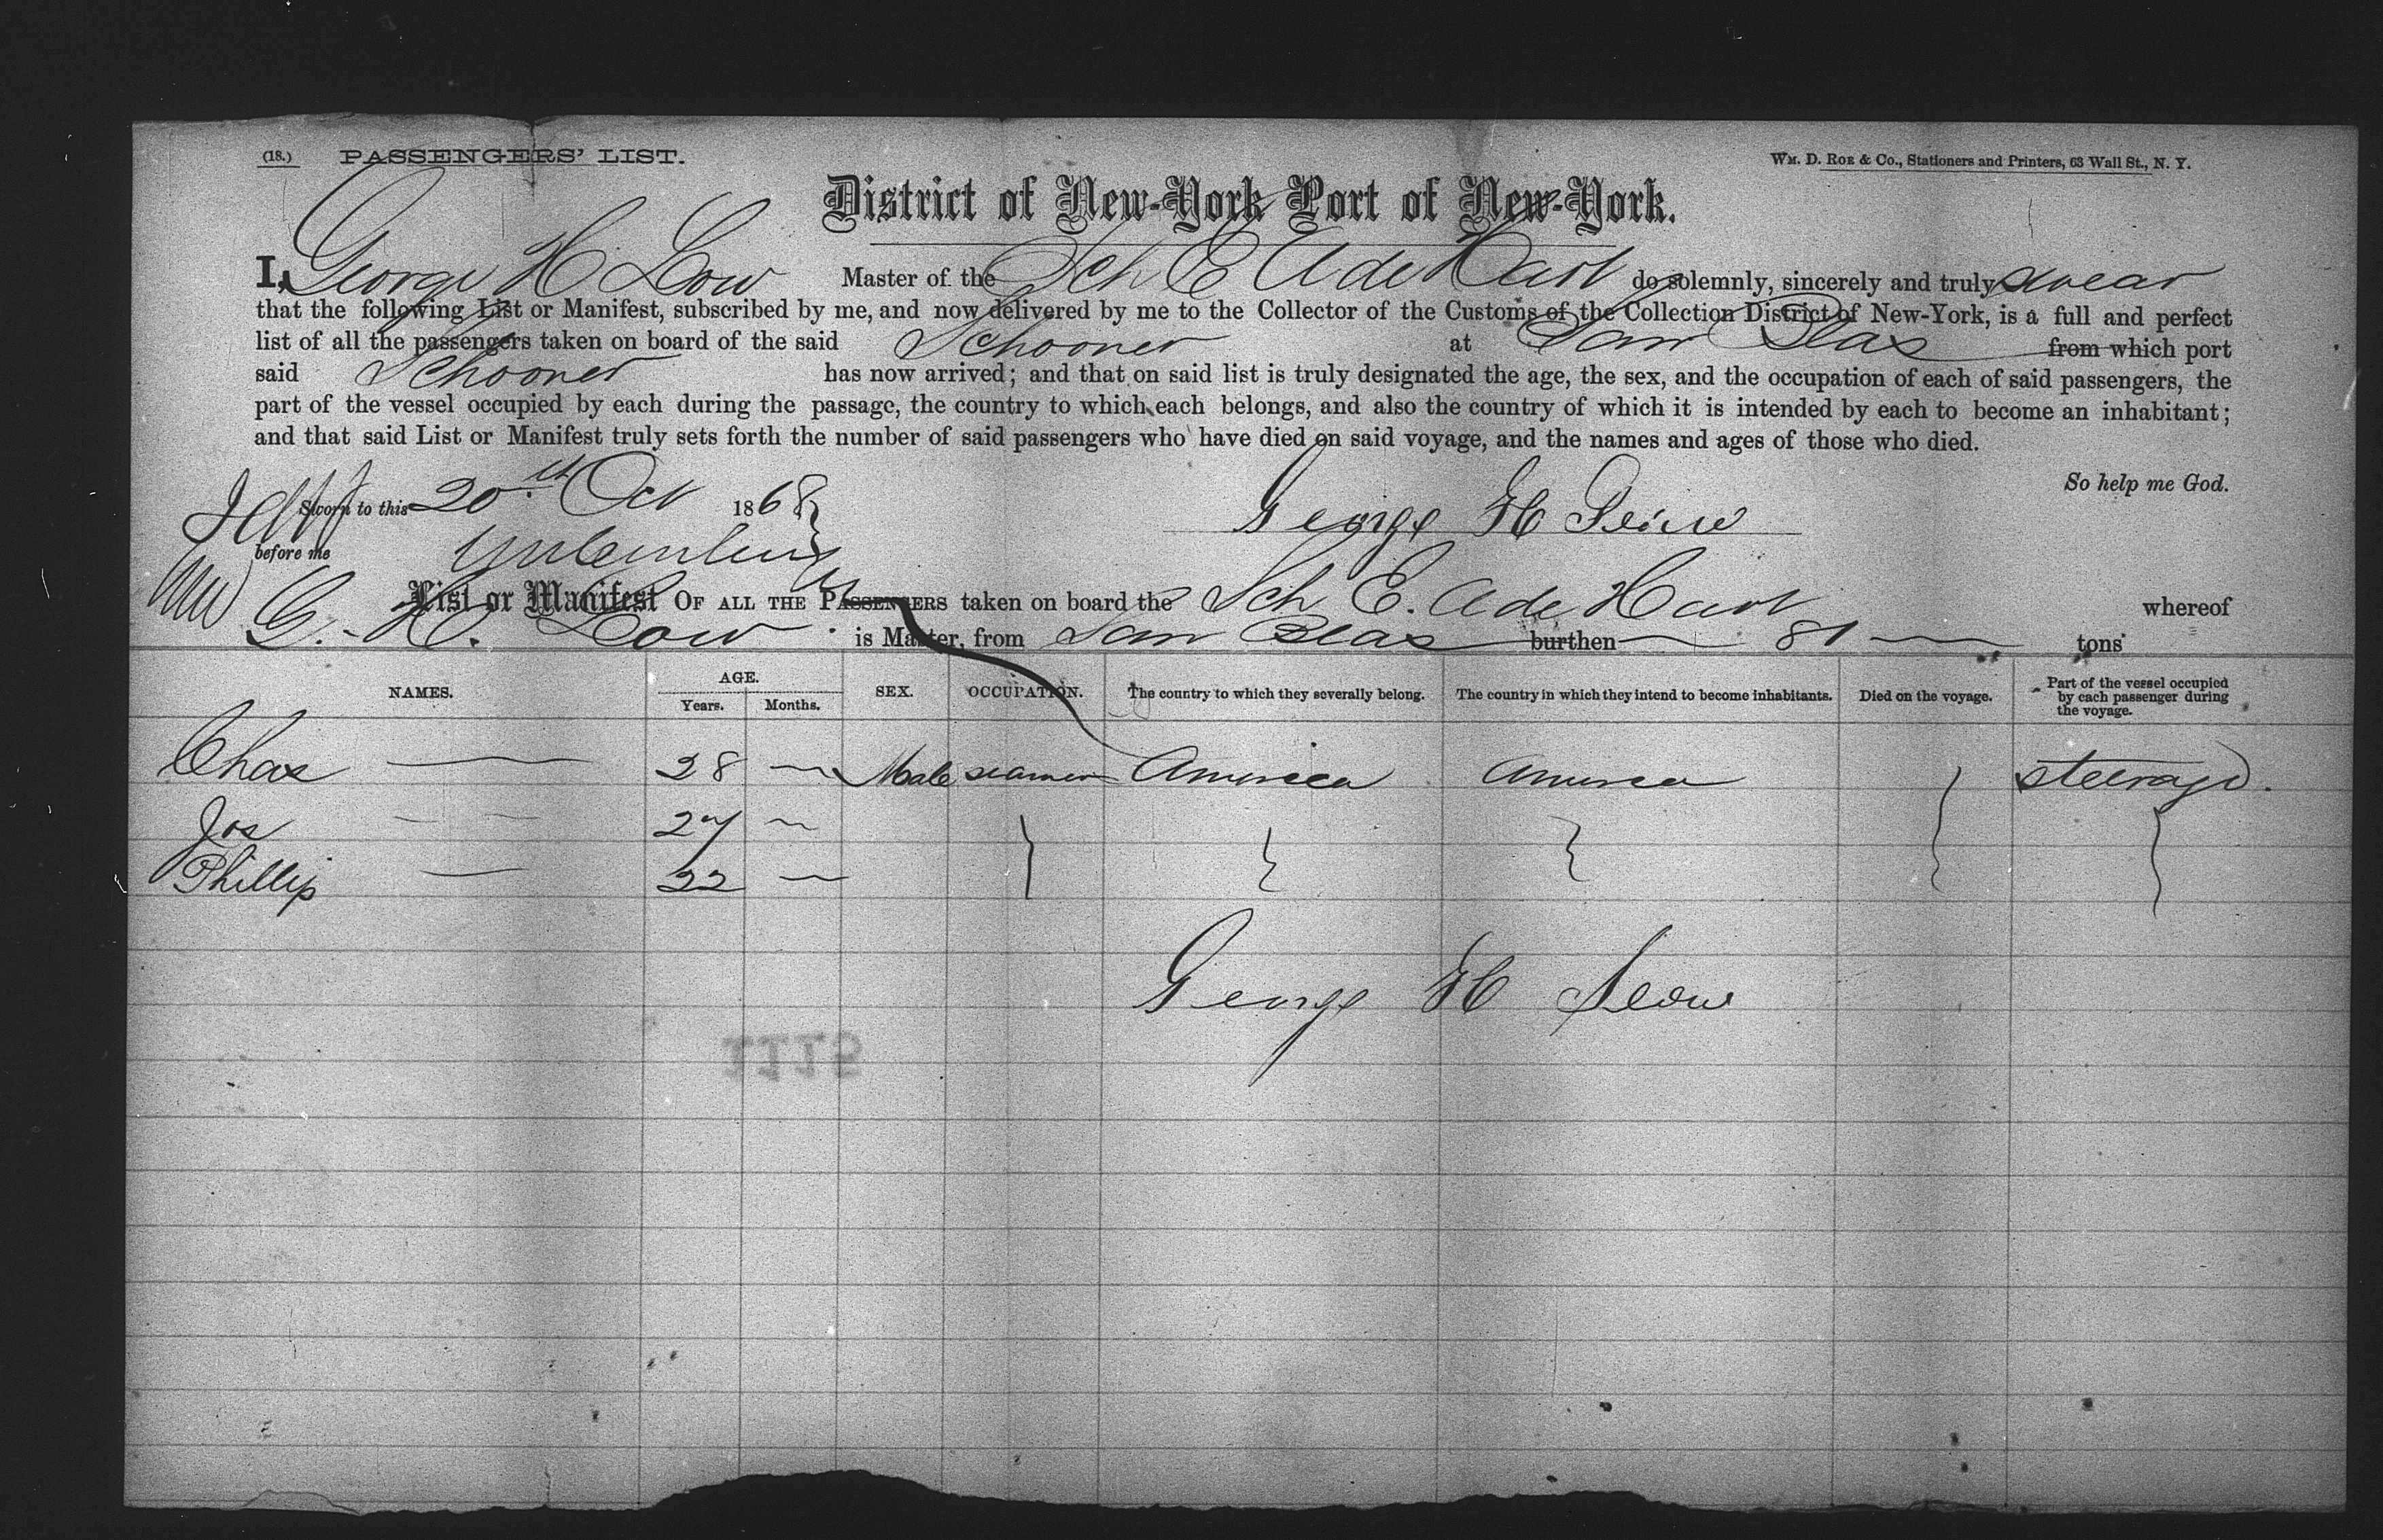 (18.) PASSENGERS' LIST.
WM. D. ROE & Co., Stationers and Printers, 63 Wall St., N. Y.
District of New-York Port of New-York.
I, George H Low Master of the Sch E A de Hart do solemnly, sincerely and truly swear
that the following List or Manifest, subscribed by me, and now delivered by me to the Collector of the Customs of the Collection District of New-York, is a full and perfect
list of all the passengers taken on board of the said Schooner at San Blas from which port
said Schooner has now arrived; and that on said list is truly designated the age, the sex, and the occupation of each of said passengers, the
part of the vessel occupied by each during the passage, the country to which each belongs, and also the country of which it is intended by each to become an inhabitant;
and that said List or Manifest truly sets forth the number of said passengers who have died on said voyage, and the names and ages of those who died.
So help me God.
Sworn to this 20th Oct 1868
George H
before me
List or Manifest OF ALL THE PASSENGERS taken on board the Sch E. A de Hart whereof
G. H. Low is Master, from San Blas burthen 81 tons
NAMES. AGE. Years. Months. SEX. OCCUPATION. The country to which they severally belong. The country in which they intend to become inhabitants. Died on the voyage. Part of the vessel occupied by each passenger during the voyage.
Chas — 28 — Male seamen America America steerage.
Jos — — 27 —
Phillip — 22 —
George H Low
1115